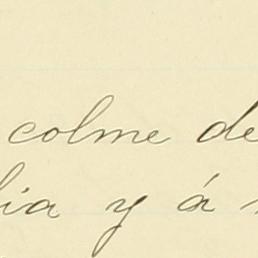 colme de
lia y á